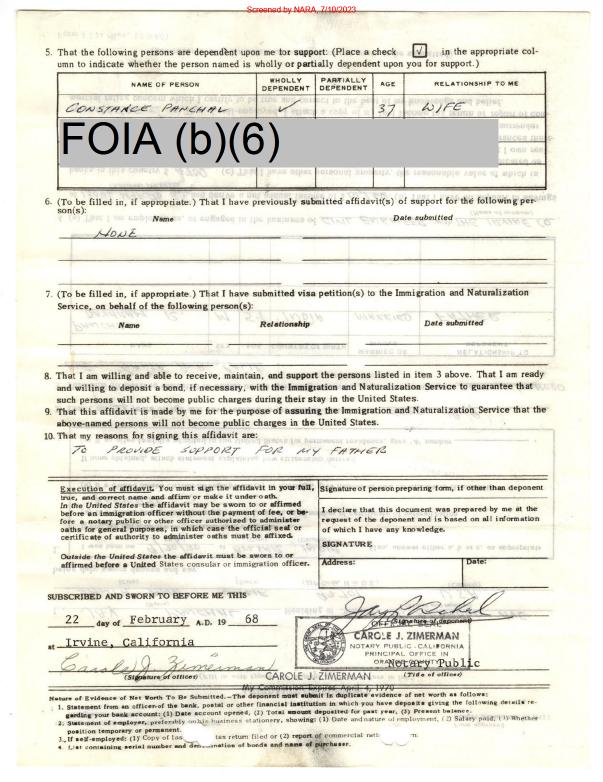 Screened by NARA, 7/10/2023
5. That the following persons are dependent upon me for support: (Place a check √ in the appropriate col-
umn to indicate whether the person named is wholly or partially dependent upon you for support.)
NAME OF PERSON WHOLLY DEPENDENT PARTIALLY DEPENDENT AGE RELATIONSHIP TO ME
CONSTANCE PANCHAL ✓ 37 WIFE
FOIA (b)(6)
6. (To be filled in, if appropriate.) That I have previously submitted affidavit(s) of support for the following per-
son(s):
Name Date submitted
NONE
7. (To be filled in, if appropriate.) That I have submitted visa petition(s) to the Immigration and Naturalization
Service, on behalf of the following person(s):
Name Relationship Date submitted
8. That I am willing and able to receive, maintain, and support the persons listed in item 3 above. That I am ready
and willing to deposit a bond, if necessary, with the Immigration and Naturalization Service to guarantee that
such persons will not become public charges during their stay in the United States.
9. That this affidavit is made by me for the purpose of assuring the Immigration and Naturalization Service that the
above-named persons will not become public charges in the United States.
10. That my reasons for signing this affidavit are:
TO PROVIDE SUPPORT FOR MY FATHER
Execution of affidavit. You must sign the affidavit in your full,
true, and correct name and affirm or make it under oath.
In the United States the affidavit may be sworn to or affirmed
before an immigration officer without the payment of fee, or be-
fore a notary public or other officer authorized to administer
oaths for general purposes, in which case the official seal or
certificate of authority to administer oaths must be affixed.
Outside the United States the affidavit must be sworn to or
affirmed before a United States consular or immigration officer.
Signature of person preparing form, if other than deponent
I declare that this document was prepared by me at the
request of the deponent and is based on all information
of which I have any knowledge.
SIGNATURE
Address: Date:
SUBSCRIBED AND SWORN TO BEFORE ME THIS
22 day of February A.D. 19 68
(Signature of deponent)
at Irvine, California
OFFICIAL SEAL
CAROLE J. ZIMERMAN
NOTARY PUBLIC - CALIFORNIA
PRINCIPAL OFFICE IN
ORANGE COUNTY
Notary Public
Carole J. Zimerman
(Signature of officer) CAROLE J. ZIMERMAN (Title of officer)
My Commission Expires April 4, 1970
Nature of Evidence of Net Worth To Be Submitted.—The deponent must submit in duplicate evidence of net worth as follows:
1. Statement from an officer of the bank, postal or other financial institution in which you have deposits giving the following details re-
garding your bank account: (1) Date account opened, (2) Total amount deposited for past year, (3) Present balance.
2. Statement of employer, preferably on his business stationery, showing: (1) Date and nature of employment, (2) Salary paid, (3) Whether
position temporary or permanent.
3. If self-employed: (1) Copy of last tax return filed or (2) report of commercial
4. List containing serial number and denomination of bonds and name of purchaser.